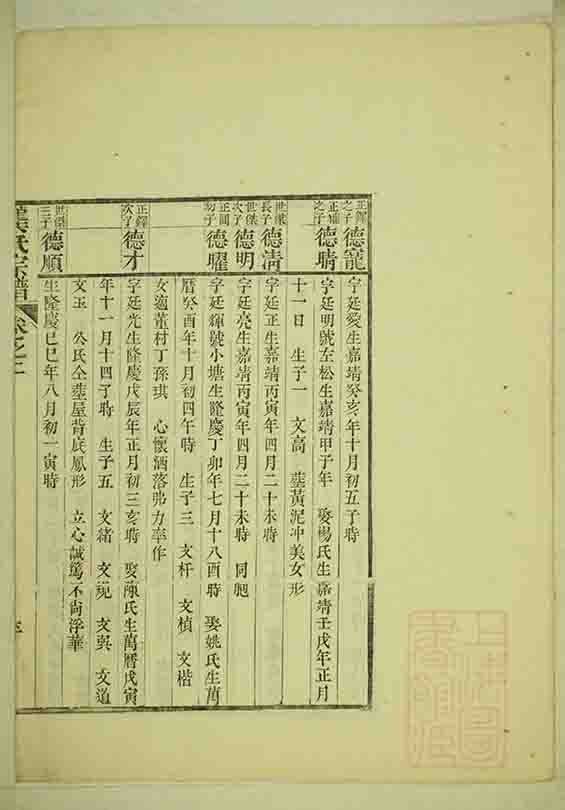 正鐸之子 德寵 字廷愛生嘉靖癸亥年十月初五子時
正 之子 德晴 字廷明號左松生嘉靖甲子年 娶楊氏生嘉靖壬戌年正月
十一日 生子一 文高 葬黃泥冲美女形
世 長子 德淸 字廷正生嘉靖丙寅年四月二十未時
世傑次子 德明 字廷亮生嘉靖丙寅年四月二十未時 同胞
正 幼子 德曜 字廷輝號小塘生隆慶丁卯年七月十八酉時 娶姚氏生萬
曆癸酉年十月初四午時 生子三 文杆 文楨 文楷
女適董村丁孫琪 心懷洒落弗力率作
正鐸次子 德才 字廷光生隆慶戊辰年正月初三亥時 娶陳氏生萬曆戊寅
年十一月十四子時 生子五 文緒 文 文 文道
文玉 公氏仝葬屋背底鳳形 立心誠篤不尚浮華
世傑三子 德順 生隆慶己巳年八月初一寅時
氏宗譜 卷之二
上海圖書館藏